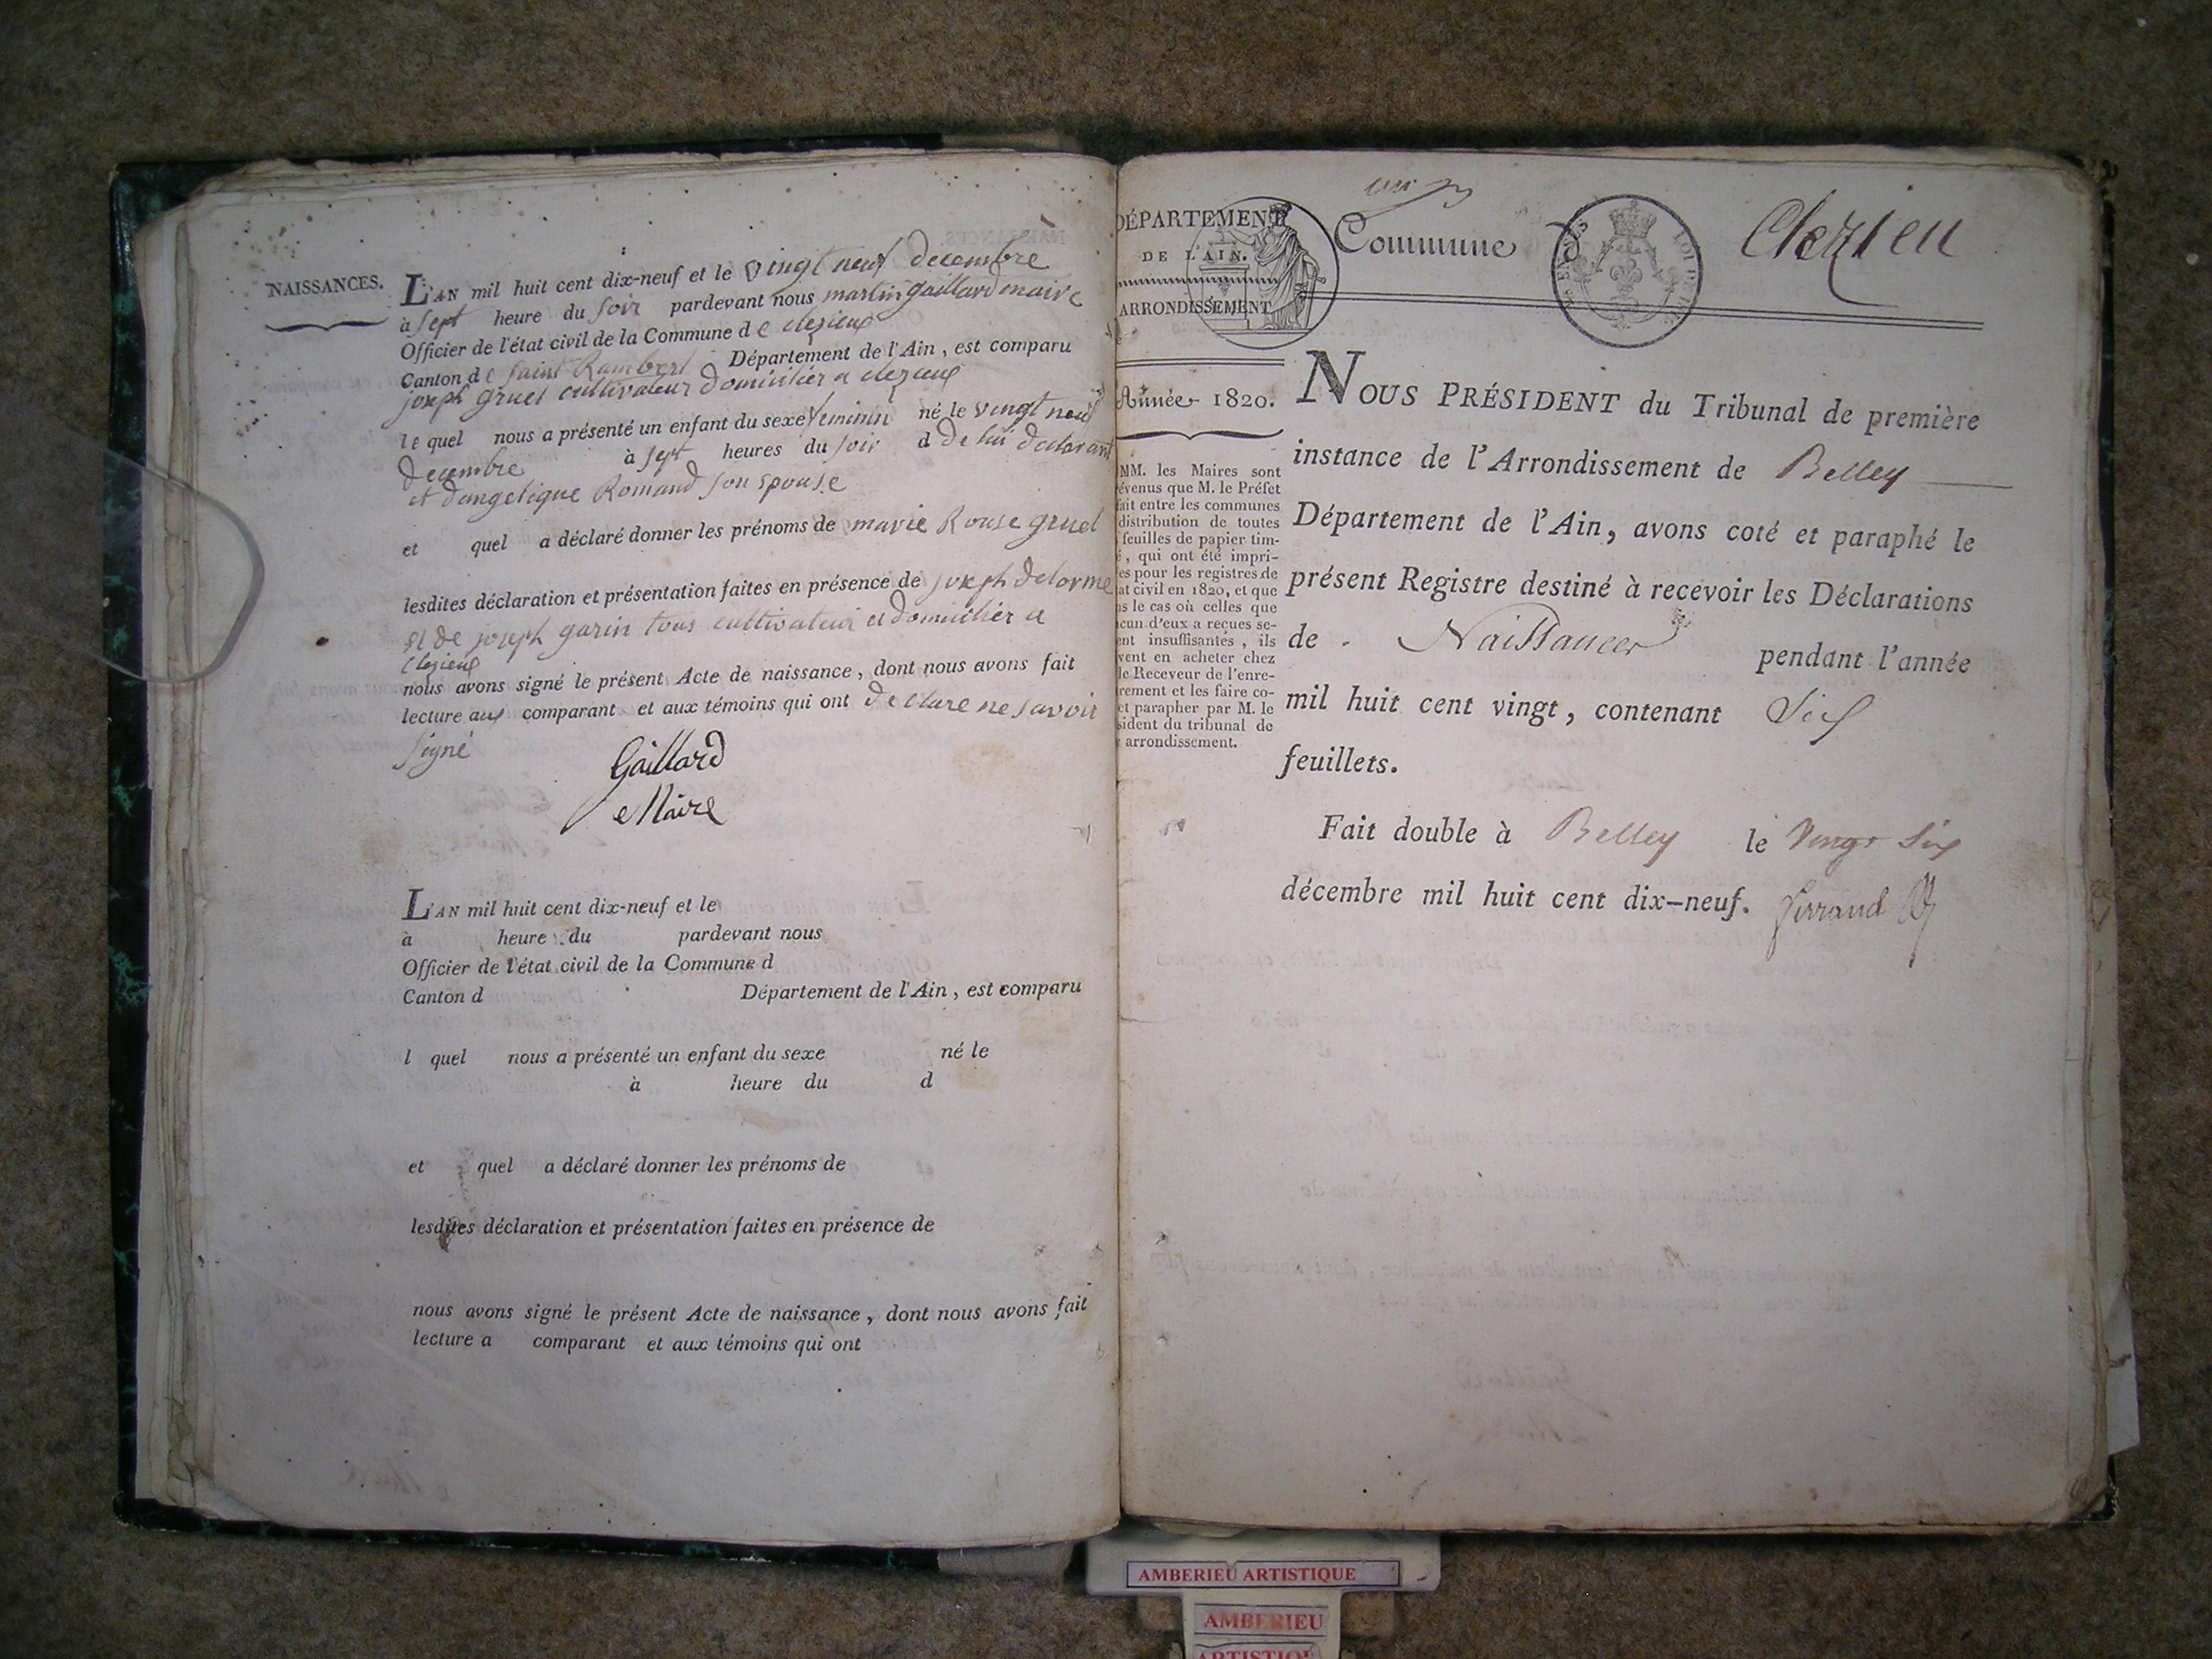 NAISSANCES.
L'AN mil huit cent dix-neuf et le vingt neuf decembre
à sept heure du soir pardevant nous martin gaillard maire
Officier de l'état civil de la Commune d e clezieu
Canton d e saint Rambert Département de l'Ain, est comparu
joseph gruel cultivateur domicilier a clezieu
l e quel nous a présenté un enfant du sexe feminin né le vingt neuf
decembre à sept heures du soir d de lui declarant
et d'angelique Romand son epouse
et quel a déclaré donner les prénoms de marie Rouse gruel
lesdites déclaration et présentation faites en présence de joseph delorme
et de joseph garin tous cultivateur et domicilier a
clezieu
nous avons signé le présent Acte de naissance, dont nous avons fait
lecture aux comparant et aux témoins qui ont declare ne savoir
signé
Gaillard
Maire
L'AN mil huit cent dix-neuf et le
à heure du pardevant nous
Officier de l'état civil de la Commune d
Canton d Département de l'Ain, est comparu
l quel nous a présenté un enfant du sexe né le
à heure du d
et quel a déclaré donner les prénoms de
lesdites déclaration et présentation faites en présence de
nous avons signé le présent Acte de naissance, dont nous avons fait
lecture a comparant et aux témoins qui ont
DÉPARTEMENT
DE L'AIN.
ARRONDISSEMENT
Commune Clezieu
Année 1820.
MM. les Maires sont
évenus que M. le Préfet
fait entre les communes
distribution de toutes
feuilles de papier tim-
é, qui ont été impri-
es pour les registres de
at civil en 1820, et que
s le cas où celles que
cun d'eux a reçues se-
ent insuffisantes, ils
vent en acheter chez
le Receveur de l'enre-
rement et les faire co-
et parapher par M. le
sident du tribunal de
arrondissement.
NOUS PRÉSIDENT du Tribunal de première
instance de l'Arrondissement de Belley
Département de l'Ain, avons coté et paraphé le
présent Registre destiné à recevoir les Déclarations
de Naissances pendant l'année
mil huit cent vingt, contenant Six
feuillets.
Fait double à Belley le Vingt Six
décembre mil huit cent dix-neuf.
AMBERIEU ARTISTIQUE
AMBERIEU
ARTISTIQUE